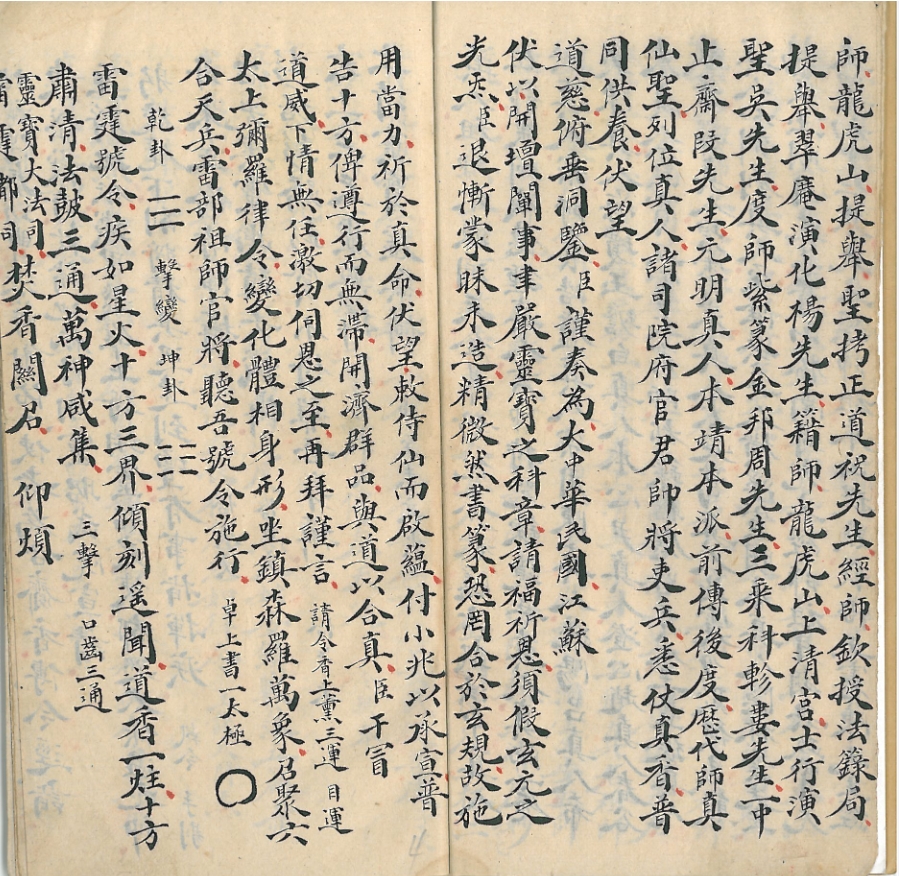 師龍虎山提舉聖拷正道祝先生經師欽授法籙局
提舉翠庵演化楊先生籍師龍虎山上清宮士行演
聖吳先生度師紫篆金邦周先生三乘科軫婁先生一中
止齋段先生元明真人本靖本派前傳後度歷代師真
仙聖列位真人諸司院府官君帥將吏兵悉仗真香普
同供養伏望
道慈俯垂洞鑒臣謹奏為大中華民國江蘇
伏以開壇闡事聿嚴靈寶之科章請福祈恩須假玄元之
光炁臣退慚蒙昧未造精微然書篆恐罔合於玄規故施
用當力祈於真命伏望敕侍仙而啟蘊付小兆以承宣普
告十方俾遵行而無滯開濟群品與道以合真臣干冒
道威下情無任激切伺恩之至再拜謹言 請令香上薰三運 目運
太上彌羅律令變化體相身形坐鎮森羅萬象召聚六
合天兵雷部祖師官將聽吾號令施行 卓上書一太極 〇
乾卦 擊變 坤卦 ☷
雷霆號令疾如星火十方三界傾刻遥聞道香一炷十方
肅清法鼓三通萬神咸集 三擊 口齒三通
靈寶大法司焚香關召仰煩
雷霆都司